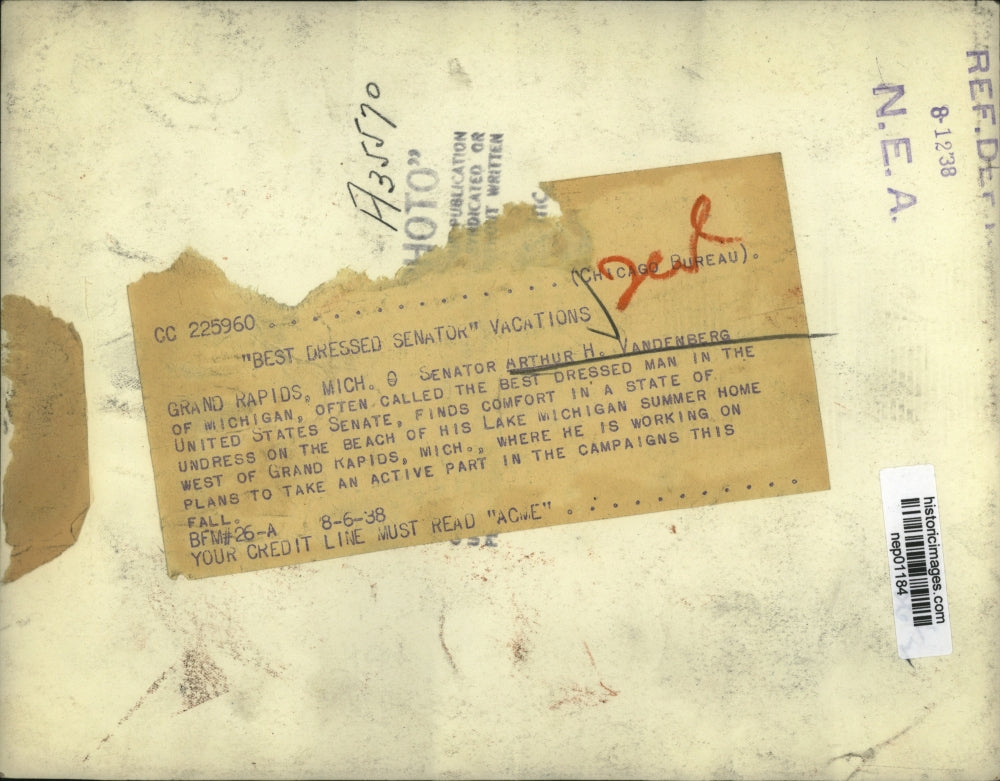 REF.DE
8-12'38
N.E.A.
A35570
HOTO"
PUBLICATION
NDICATED OR
T WRITTEN
CC 225960 . . . . . . . . . . . . . (CHICAGO BUREAU).
"BEST DRESSED SENATOR" VACATIONS
GRAND RAPIDS, MICH. SENATOR ARTHUR H. VANDENBERG
OF MICHIGAN, OFTEN CALLED THE BEST DRESSED MAN IN THE
UNITED STATES SENATE, FINDS COMFORT IN A STATE OF
UNDRESS ON THE BEACH OF HIS LAKE MICHIGAN SUMMER HOME
WEST OF GRAND RAPIDS, MICH., WHERE HE IS WORKING ON
PLANS TO TAKE AN ACTIVE PART IN THE CAMPAIGNS THIS
FALL.
BFM#26-A 8-6-38
YOUR CREDIT LINE MUST READ "ACME" . . . . . . . . . . .
historicimages.com
nep01184